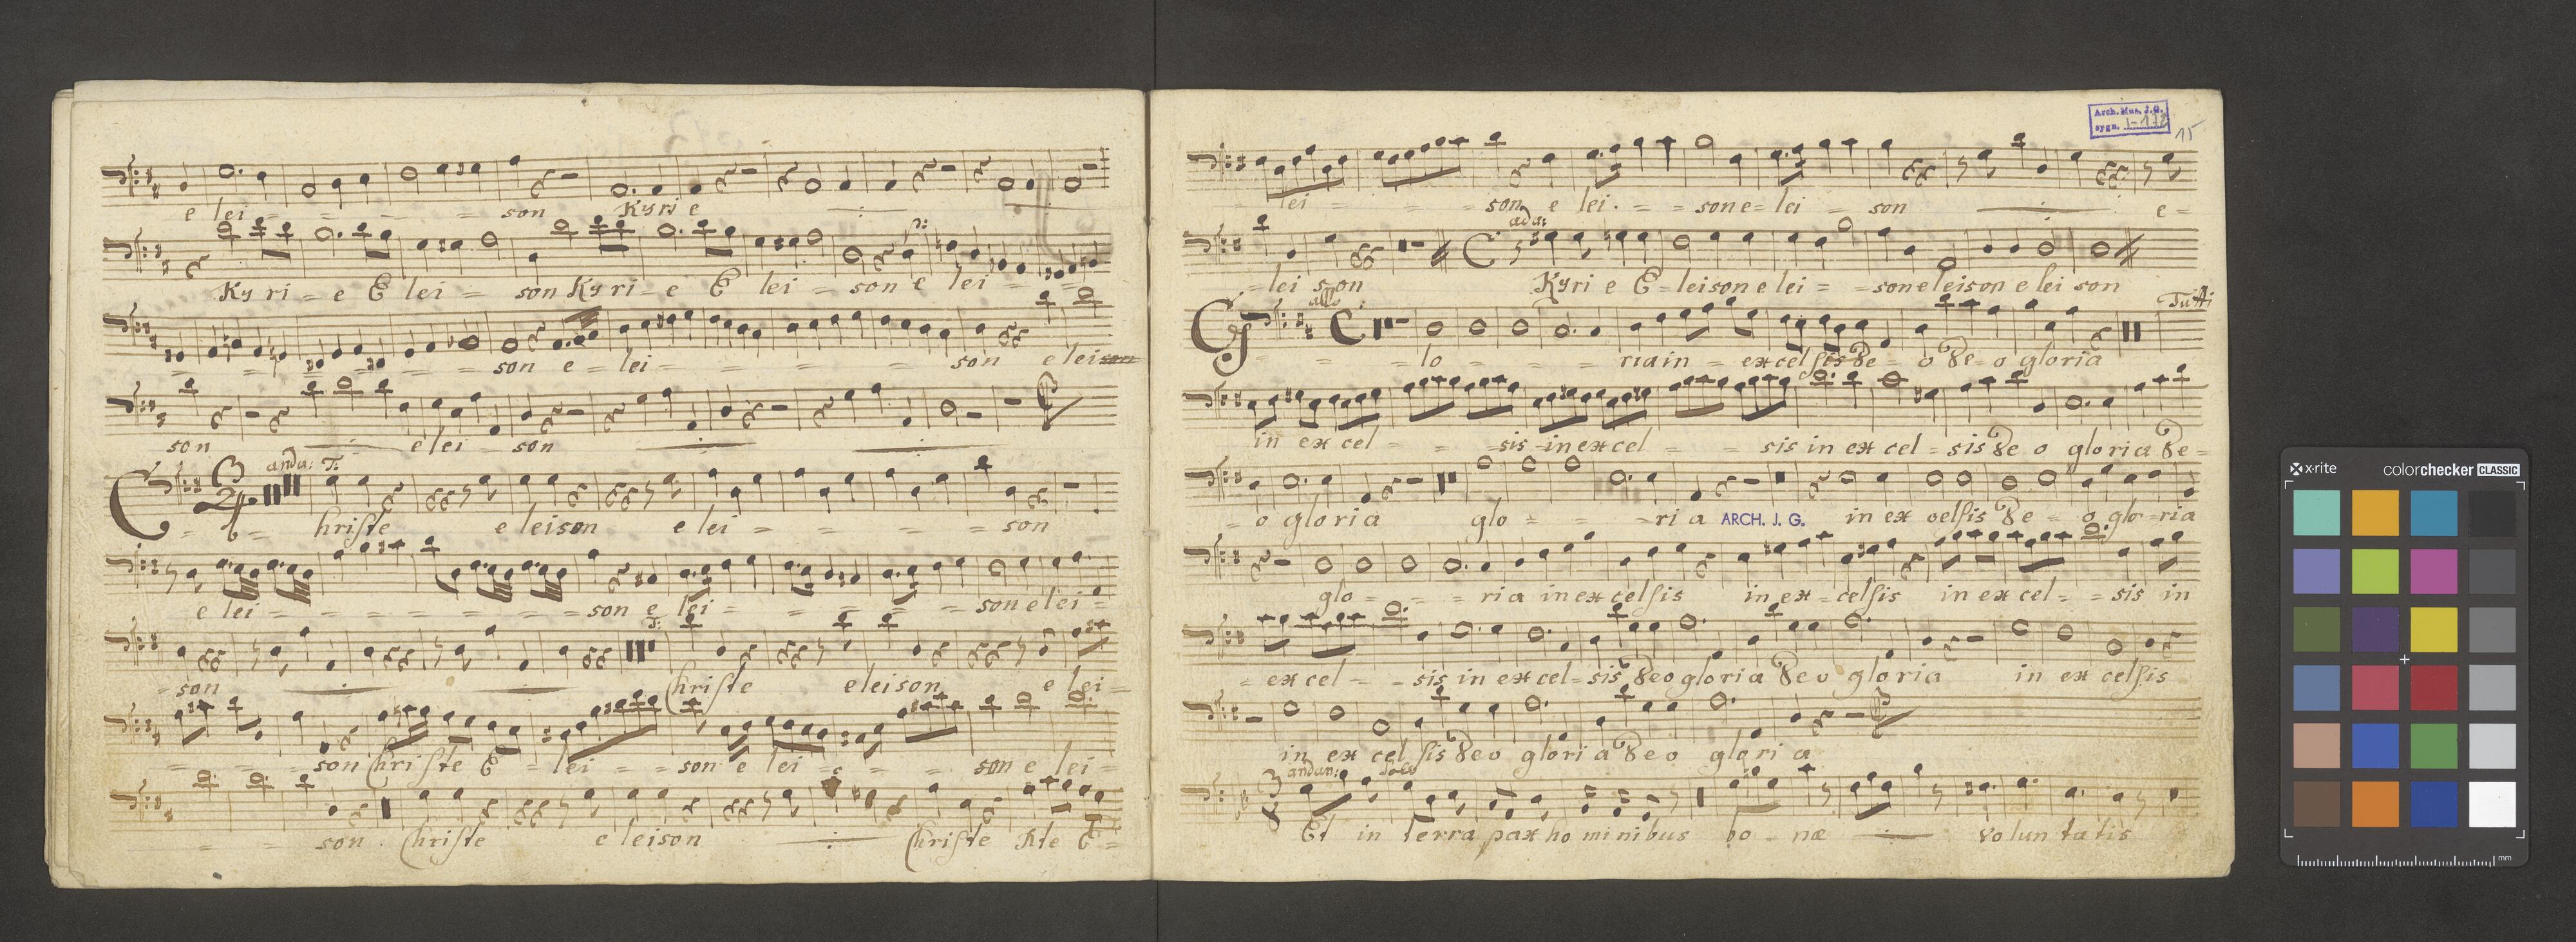 e lei = = = = son Kyrie
Ky ri = e E lei = son Ky ri = e E lei = son e lei = =
= = = = = son e = lei = = = = = son e lei son
son e lei = son
anda: T:
3
Christe e leison e lei = = = = son
e lei = = = = = = = son e lei = = = = son e lei =
T:
son Christe e leison e lei =
= = = son Christe E = lei = = son e lei = = = son e lei =
= = son Christe e leison Christe Xte E =
Arch. Mus. J. G.
sygn. I-178
15
lei = = = = son e lei = = son e = lei = son e =
ada:
= lei son Kyri e E = leison e lei = = son e leison e lei son
allo
Tutti
Glo = = = = ria in = excelsis De = o De = o gloria
in ex cel = = = sis in excel = = sis in ex cel = sis De o gloria De =
= o gloria glo = = = ri a in ex celsis De = o glo = ria
ARCH. J. G.
glo = = = ri a in ex celsis in ex = celsis in ex cel = = sis in
= ex cel = = sis in ex cel = sis Deo gloria Deo gloria in ex celsis
in ex cel sis Deo gloria Deo gloria
3
8
andan: Solo
Et in terra pax ho mi nibus bo = næ volun tatis
x-rite
colorchecker CLASSIC
mm